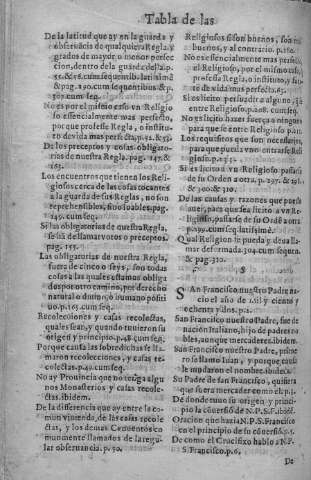 Tabla de las
De la latitud que ay en la guarda y
observacia de qualquiera Regla y
grados de mayor o menor perfec
cion, dentro dela guarda della. p.
55. & 58. cum sequentib. latissimè
& pag. 290. cum sequentibus & p.
cum seq.
No es por el mismo caso un Religio
so essencialmente mas perfecto,
porque professe Regla, o institu-
to devida mas perfecta.
De los preceptos y cosas obligato-
rias de nuestra Regla. pag. 147. &
163.
Los encuentros que tienen los Reli-
giosos cerca de las cosas tocantes
a la guarda de sus Reglas, no son
reprehensibles, sino loables. pag.
149. cum seq.
Si las obligatorias de nuestra Regla,
se ha de llamar votos o preceptos.
pag. 155.
Las obligatorias de nuestra Regla,
fuera de cinco o seys, son todas
cosas a las quales estaman obliga
dos por otro camino, por derecho
natural o divino o humano positi
vo. p. 163. cum seq.
Recolecciones y casas recolectas,
quales sean, y quando tuvieron su
origen y principio. p. 48. cum seq.
Porque causa las sobredichas se lla-
maron recolecciones, y casas re
colectas. p. 49. cum seq.
No ay Provincia que no tenga algu
nos Monasterios y casas recole-
ctas. ibidem.
De la differencia que ay entre la co-
mun vivienda, de las casas recole
ctas, y los demas Conventos co
munmente llamados de la regu-
lar observancia. p. 50.
Religiosos si son buenos, son mu
buenos, y al contrario. p. 180.
No es essencialmente mas perfecto,
el Religioso, por el mismo caso
professa Regla, o instituto, y su-
to de vida mas perfecta. 63.
Si es licito persuadir a alguno, q̃
entre Religioso. p. 208. cum seq.
No es licito hazer fuerça a ninguno
para que se entre Religioso.
Los requisitos que son necessarios,
para que pueda uno entrarse Reli
gioso. p. 213.
Si es licito a un Religioso passarse
de su Orden a otra. p. 297. & 298.
& 300. & 310.
De las causas y razones que puede
aver, para que sea licito a un Re-
ligioso, passarse de su Ordē a otra
p. 299. cum seq. latissimè.
Qual Religion se pueda y deva lla-
mar deformada. 304. cum sequen.
& pag. 310.
S
SAn Francisco nuestro Padre na-
cio el año de mil y ciento y
ochenta y dos. p. 1.
San Francisco nuestro Padre, fue de
nacion Italiano, hijo de padres no
bles, aunque mercaderes. ibidem.
San Francisco nuestro Padre, prime
ro se llamo Iuan, y porque causa
le mudaron el nombre. ibidem.
Su Padre de San Francisco, quisiera
que fuera mercader como el. p.
De donde tuvo su origen y princi-
pio la cōversiō de N. P. S. F. ibidē.
Oracion que hazia N. P. S. Francisco
en el principio de su cōversiō. p. 5.
De como el Crucifixo hablo a N. P.
S. Francisco. p. 6.
De